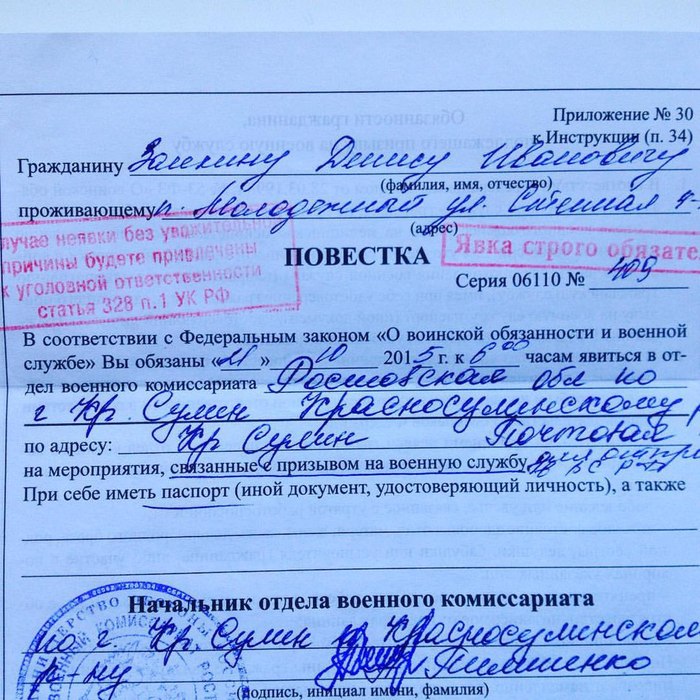 Приложение № 30
к Инструкции (п. 34)
Гражданину Заикину Денису Ивановичу
(фамилия, имя, отчество)
проживающему п. Молодежный ул. Степная
(адрес)
случае неявки без уважительн
причины будете привлечены
к уголовной ответственности
статья 328 п.1 УК РФ
ПОВЕСТКА
Явка строго обязате
Серия 06110 № 409
В соответствии с Федеральным законом «О воинской обязанности и военной
службе» Вы обязаны «21» 10 2015 г. к 6 00 часам явиться в от-
дел военного комиссариата Ростовская обл по
г Кр. Сулин Красносулинскому р
по адресу: Кр Сулин Почтовая
на мероприятия, связанные с призывом на военную службу для отпр
При себе иметь паспорт (иной документ, удостоверяющий личность), а также
Начальник отдела военного комиссариата
по г. Кр. Сулин и Красносулинском
р-ну Пимшенко
(подпись, инициал имени, фамилия)